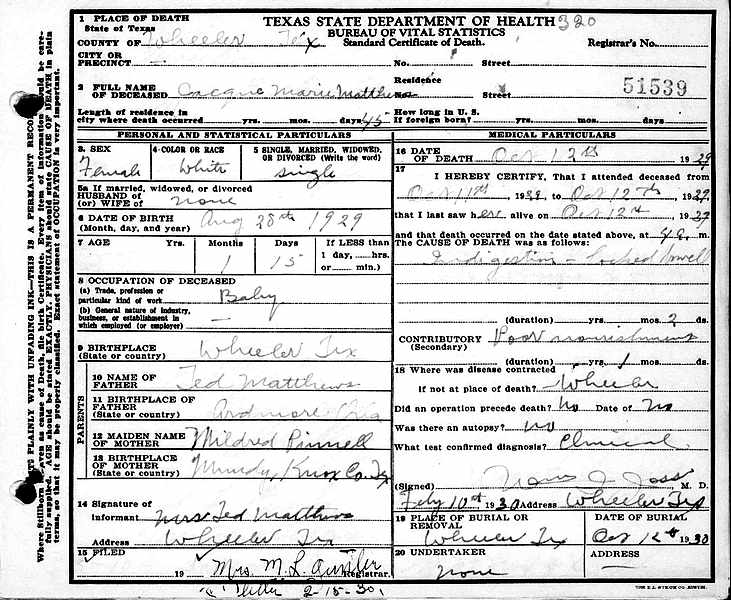 1 PLACE OF DEATH
State of Texas
COUNTY OF Wheeler Tex
CITY OR PRECINCT —
TEXAS STATE DEPARTMENT OF HEALTH 320
BUREAU OF VITAL STATISTICS
Standard Certificate of Death.
Registrar's No.
No. Street
2 FULL NAME OF DECEASED Marie Matthews
Residence
No. Street
51539
Length of residence in city where death occurred yrs. mos. days 45
How long in U. S. If foreign born? yrs. mos. days
PERSONAL AND STATISTICAL PARTICULARS
3. SEX Female
4-COLOR OR RACE White
5 SINGLE, MARRIED, WIDOWED, OR DIVORCED (Write the word) single
5a If married, widowed, or divorced
HUSBAND OF (or) WIFE OF none
6 DATE OF BIRTH (Month, day, and year) Aug 28th 1929
7 AGE Yrs. Months 1 Days 15 If LESS than 1 day, hrs. or min.)
8 OCCUPATION OF DECEASED
(a) Trade, profession or particular kind of work Baby
(b) General nature of industry, business, or establishment in which employed (or employer) —
9 BIRTHPLACE (State or country) Wheeler Tex
PARENTS
10 NAME OF FATHER Ted Matthews
11 BIRTHPLACE OF FATHER (State or country) Ardmore
12 MAIDEN NAME OF MOTHER Mildred Pinnell
13 BIRTHPLACE OF MOTHER (State or country) Munday, Knox Co. Tx
14 Signature of Informant Mrs Ted Matthews
Address Wheeler Tex
15 FILED
19 Mrs. M. L. Registrar.
2-15-30
MEDICAL PARTICULARS
16 DATE OF DEATH Oct 12th 1929
17 I HEREBY CERTIFY, That I attended deceased from
Oct 11th 1929, to Oct 12th, 1929
that I last saw her alive on Oct 12th, 1929
and that death occurred on the date stated above, at m.
The CAUSE OF DEATH was as follows:
Indigestion - Locked bowell
(duration) yrs. mos. 2 ds.
CONTRIBUTORY (Secondary) Poor nourishment
(duration) yrs. 1 mos. ds.
18 Where was disease contracted
If not at place of death? Wheeler
Did an operation precede death? No Date of No
Was there an autopsy? no
What test confirmed diagnosis? Clinical
(Signed) M. D.
Feby 10th, 1930 Address Wheeler Tex
19 PLACE OF BURIAL OR REMOVAL Wheeler Tex
DATE OF BURIAL Oct 12th 1930
20 UNDERTAKER none
ADDRESS —